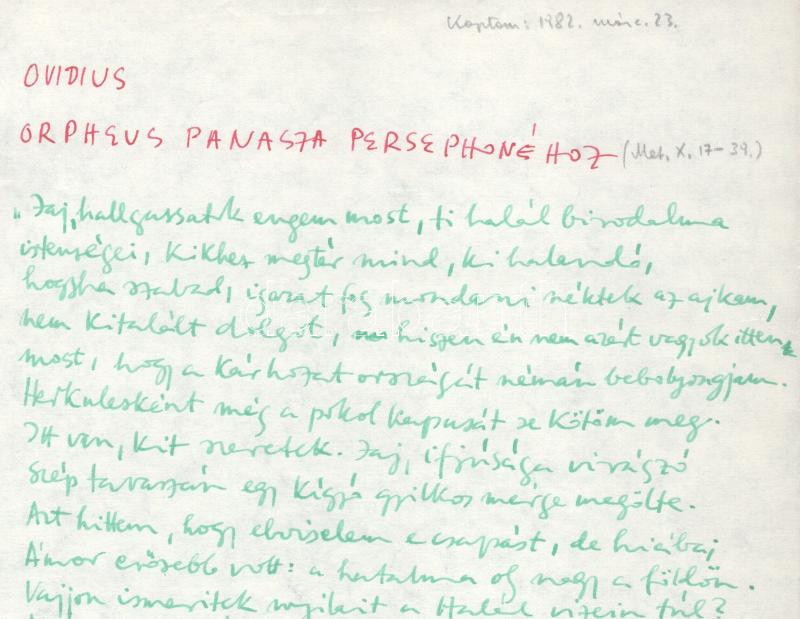 Kaptam: 1982. márc. 23.
OVIDIUS
ORPHEUS PANASZA PERSEPHONÉHOZ (Met. X. 17-39.)
„Jaj, hallgassatok engem most, ti halál birodalma
istenségei, kikhez megtér mind, ki halandó,
hogyha szabad, igazat fog mondani néktek az ajkam,
nem kitalált dolgot, hiszen én nem azért vagyok itten
most, hogy a kárhozat országát némán bebolyongjam.
Herkulesként még a pokol kapusát se kötöm meg.
Itt van, kit szeretek. Jaj, ifjúsága virágzó
szép tavaszán egy kígyó gyilkos mérge megölte.
Azt hittem, hogy elviselem a csapást, de hiába;
Ámor erősebb volt: a hatalma oly nagy a földön.
Vajjon ismeritek nyilait a Halál vizein túl?